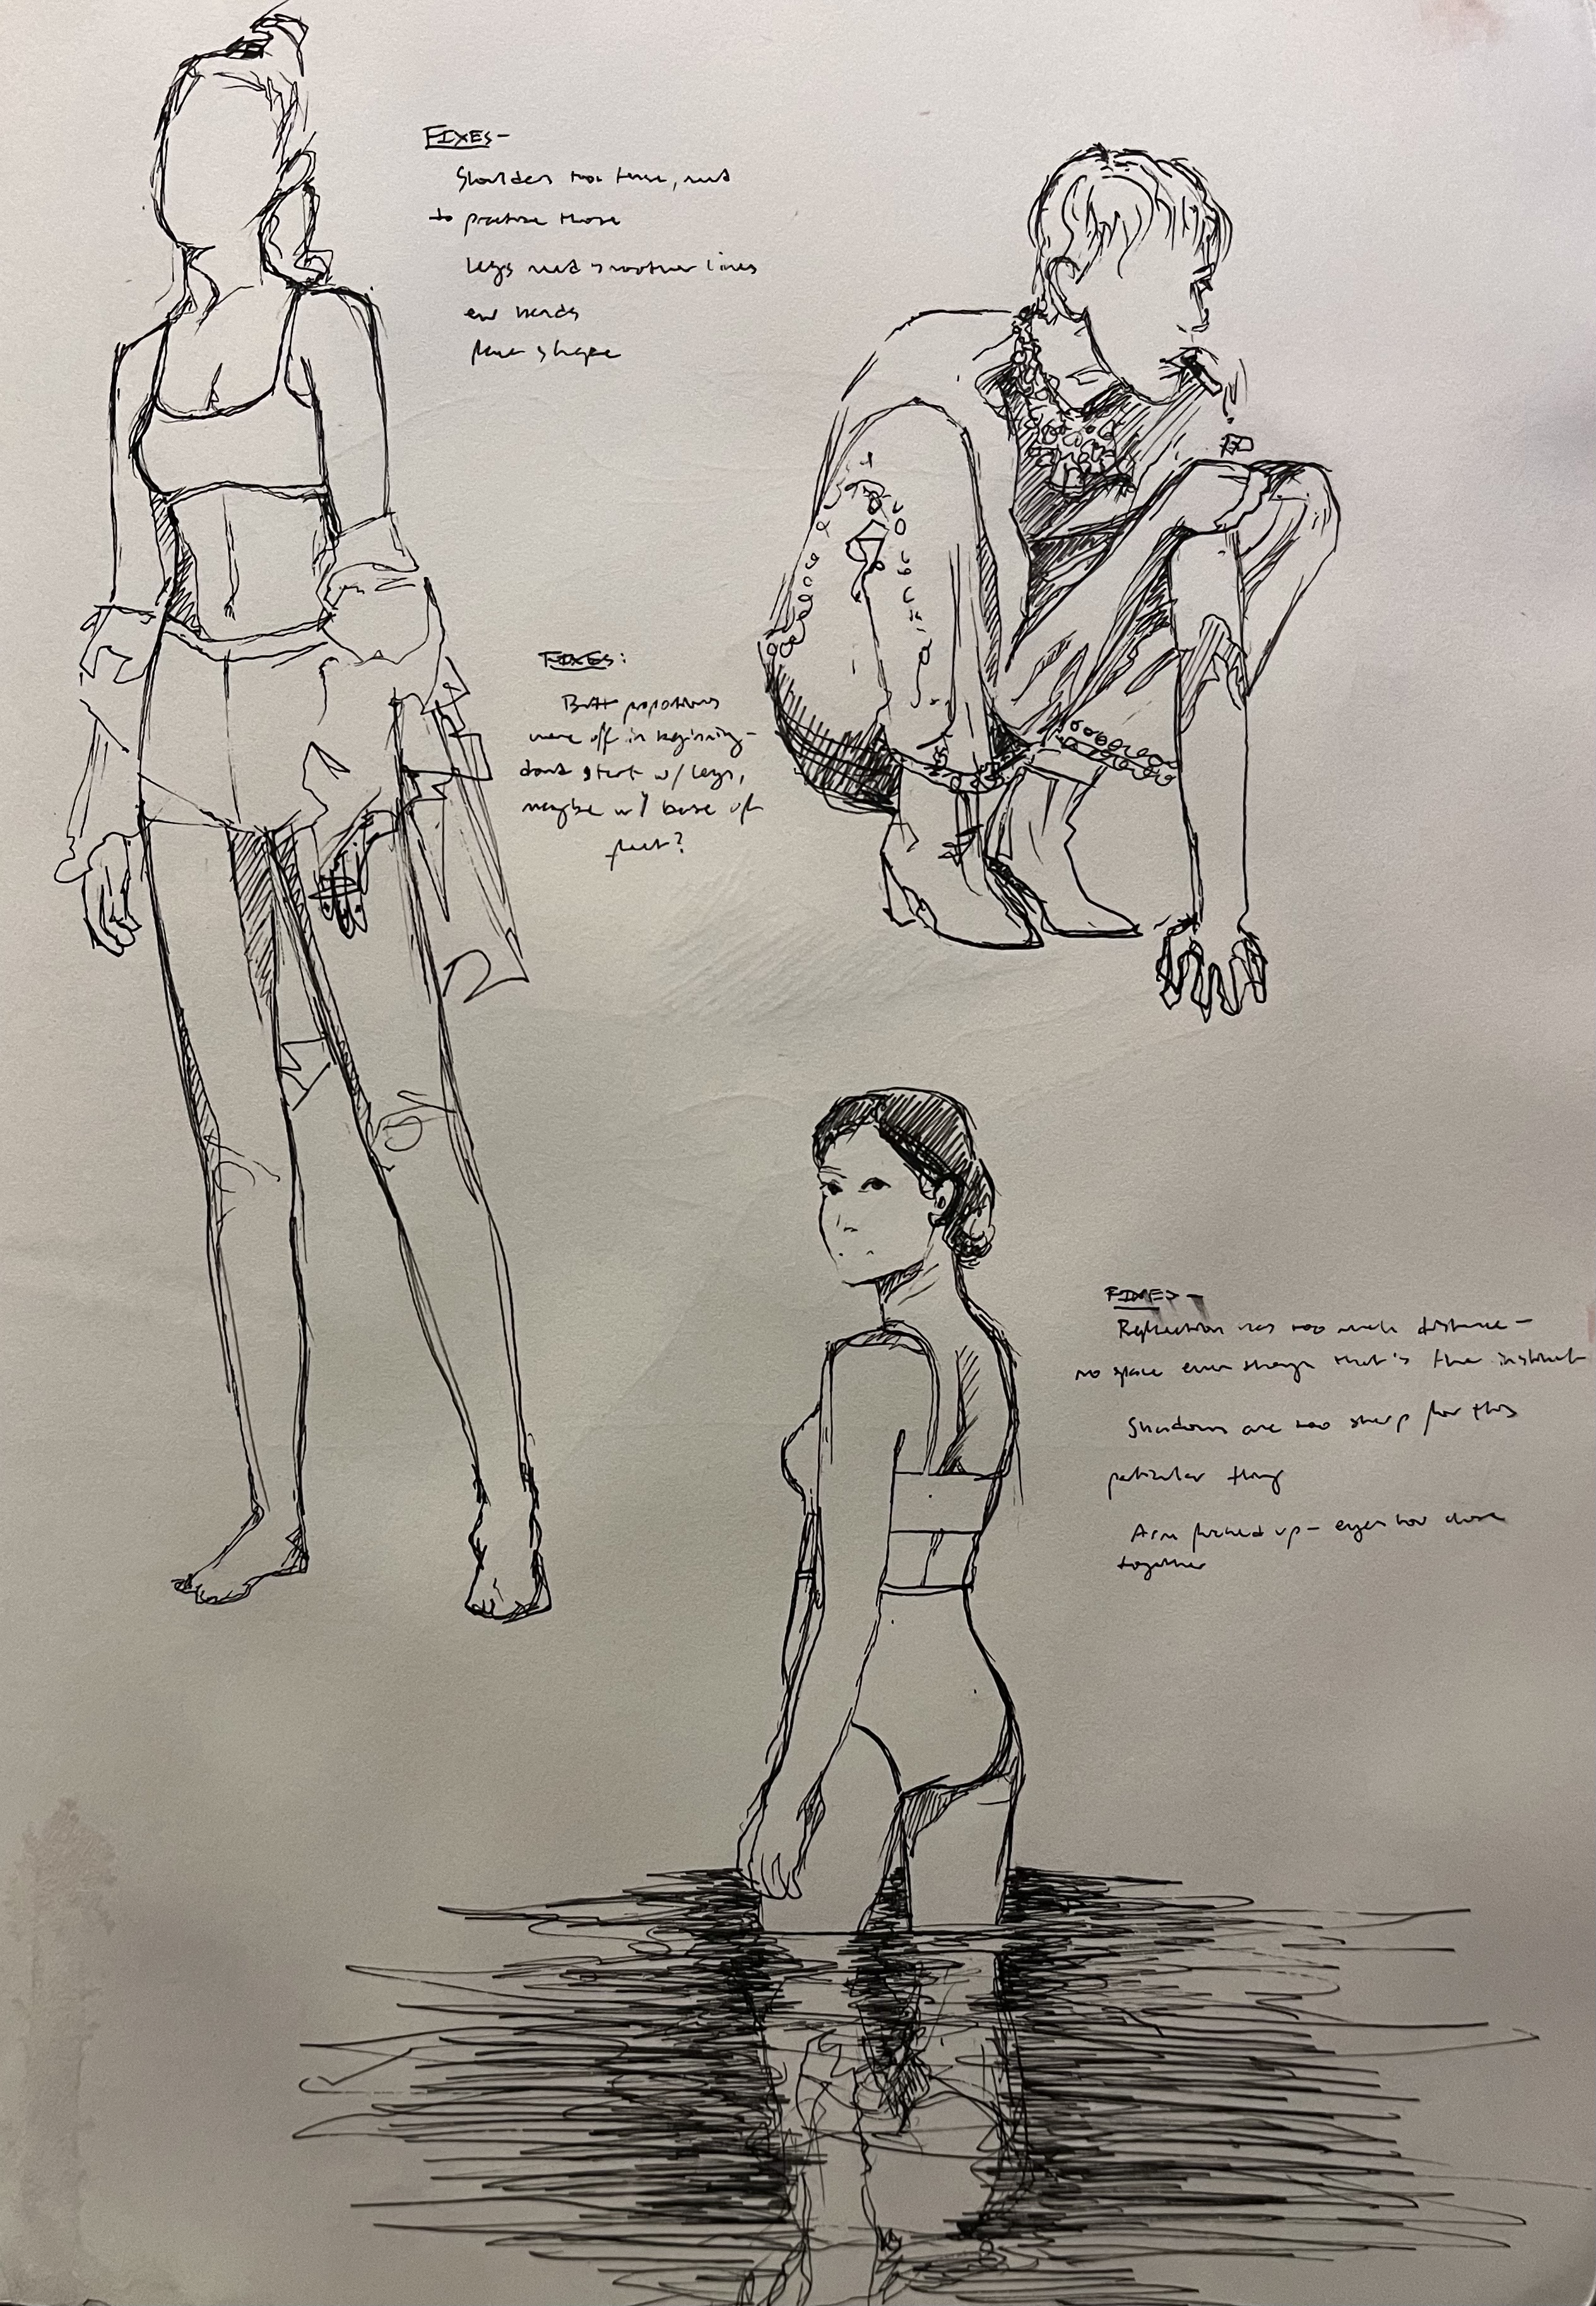 FIXES-
Shoulders too tense, need
to practice those
Legs need smoother lines
ew hands
face shape
FIXES:
Butt proportions
were off in beginning-
dont start w/ legs,
maybe w/ base of
feet?
FIXES-
Reflection has too much distance-
no space even though that's the instinct
Shadows are too sharp for this
particular thing
Arm fucked up- eyes too close
together